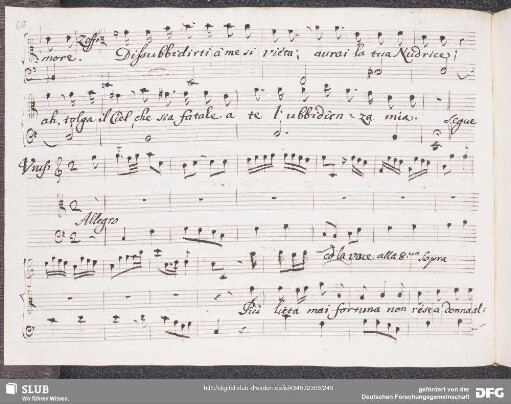 more. Dissubbidirti à me si vieta; aurai la tua Nudrice;
ah, tolga il Ciel, che sia fatale a te l'ubbidienza mia. Segue
Unis:
Allegro
Co la voce alla 8.va Sopra
Più lieta mai fortuna non rese à donna al:
SLUB
Wir führen Wissen.
gefördert von der
Deutschen Forschungsgemeinschaft
DFG